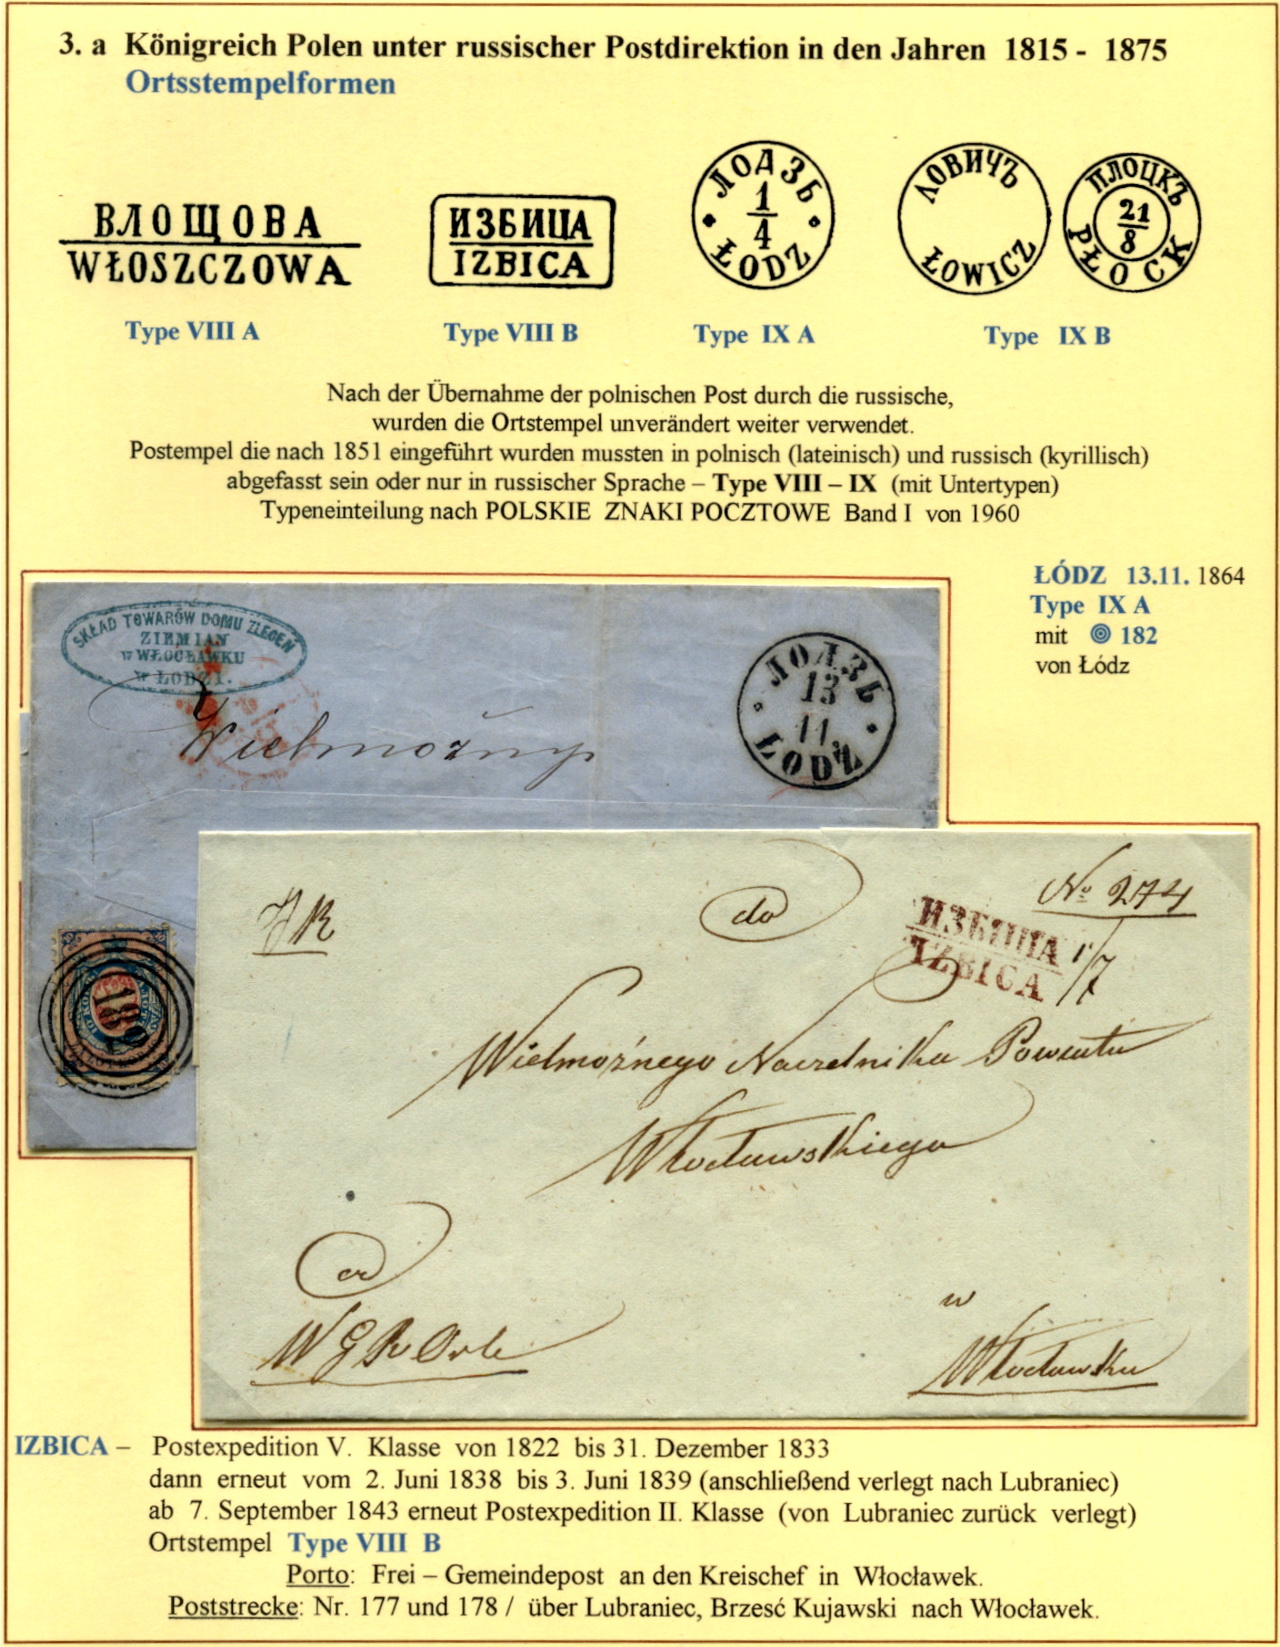 3. a Königreich Polen unter russischer Postdirektion in den Jahren 1815 - 1875
Ortsstempelformen
ВЛОЩОВА
WŁOSZCZOWA
ИЗБИЦА
IZBICA
ЛОДЗЬ
1/4
ŁODZ
ЛОВИЧЪ
ŁOWICZ
ПЛОЦКЪ
21/8
PŁOCK
Type VIII A
Type VIII B
Type IX A
Type IX B
Nach der Übernahme der polnischen Post durch die russische,
wurden die Ortstempel unverändert weiter verwendet.
Postempel die nach 1851 eingeführt wurden mussten in polnisch (lateinisch) und russisch (kyrillisch)
abgefasst sein oder nur in russischer Sprache – Type VIII – IX (mit Untertypen)
Typeneinteilung nach POLSKIE ZNAKI POCZTOWE Band I von 1960
ŁÓDZ 13.11. 1864
Type IX A
mit 182
von Łódz
SKŁAD TOWARÓW DOMU ZLECEŃ
ZIEMIAN
w WŁOCŁAWKU
w ŁODZI.
ЛОДЗЬ
13
11
ŁODZ
Wielmożny
182
No 274
do
ИЗБИЦА
IZBICA
1/7
Wielmożnego Naczelnika Powiatu
Włocławskiego
W G
w
Włocławku
IZBICA – Postexpedition V. Klasse von 1822 bis 31. Dezember 1833
dann erneut vom 2. Juni 1838 bis 3. Juni 1839 (anschließend verlegt nach Lubraniec)
ab 7. September 1843 erneut Postexpedition II. Klasse (von Lubraniec zurück verlegt)
Ortstempel Type VIII B
Porto: Frei – Gemeindepost an den Kreischef in Włocławek.
Poststrecke: Nr. 177 und 178 / über Lubraniec, Brzesć Kujawski nach Włocławek.